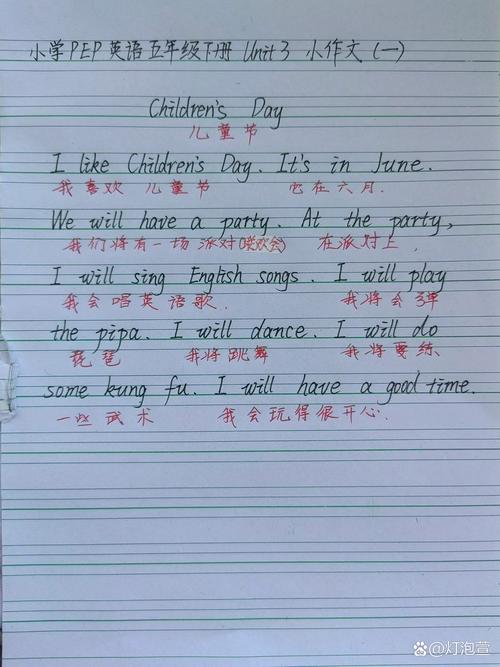 小学PEP英语五年级下册 Unit 3 小作文(一)
Children's Day
儿童节
I like Children's Day. It's in June.
我喜欢 儿童节 它在六月.
We will have a party. At the party,
我们将有一场派对(联欢会) 在派对上,
I will sing English songs. I will play
我会唱英语歌. 我将会弹
the pipa. I will dance. I will do
琵琶 我将跳舞 我将要练
some kung fu. I will have a good time.
一些武术 我会玩得很开心.
百度@灯泡萱